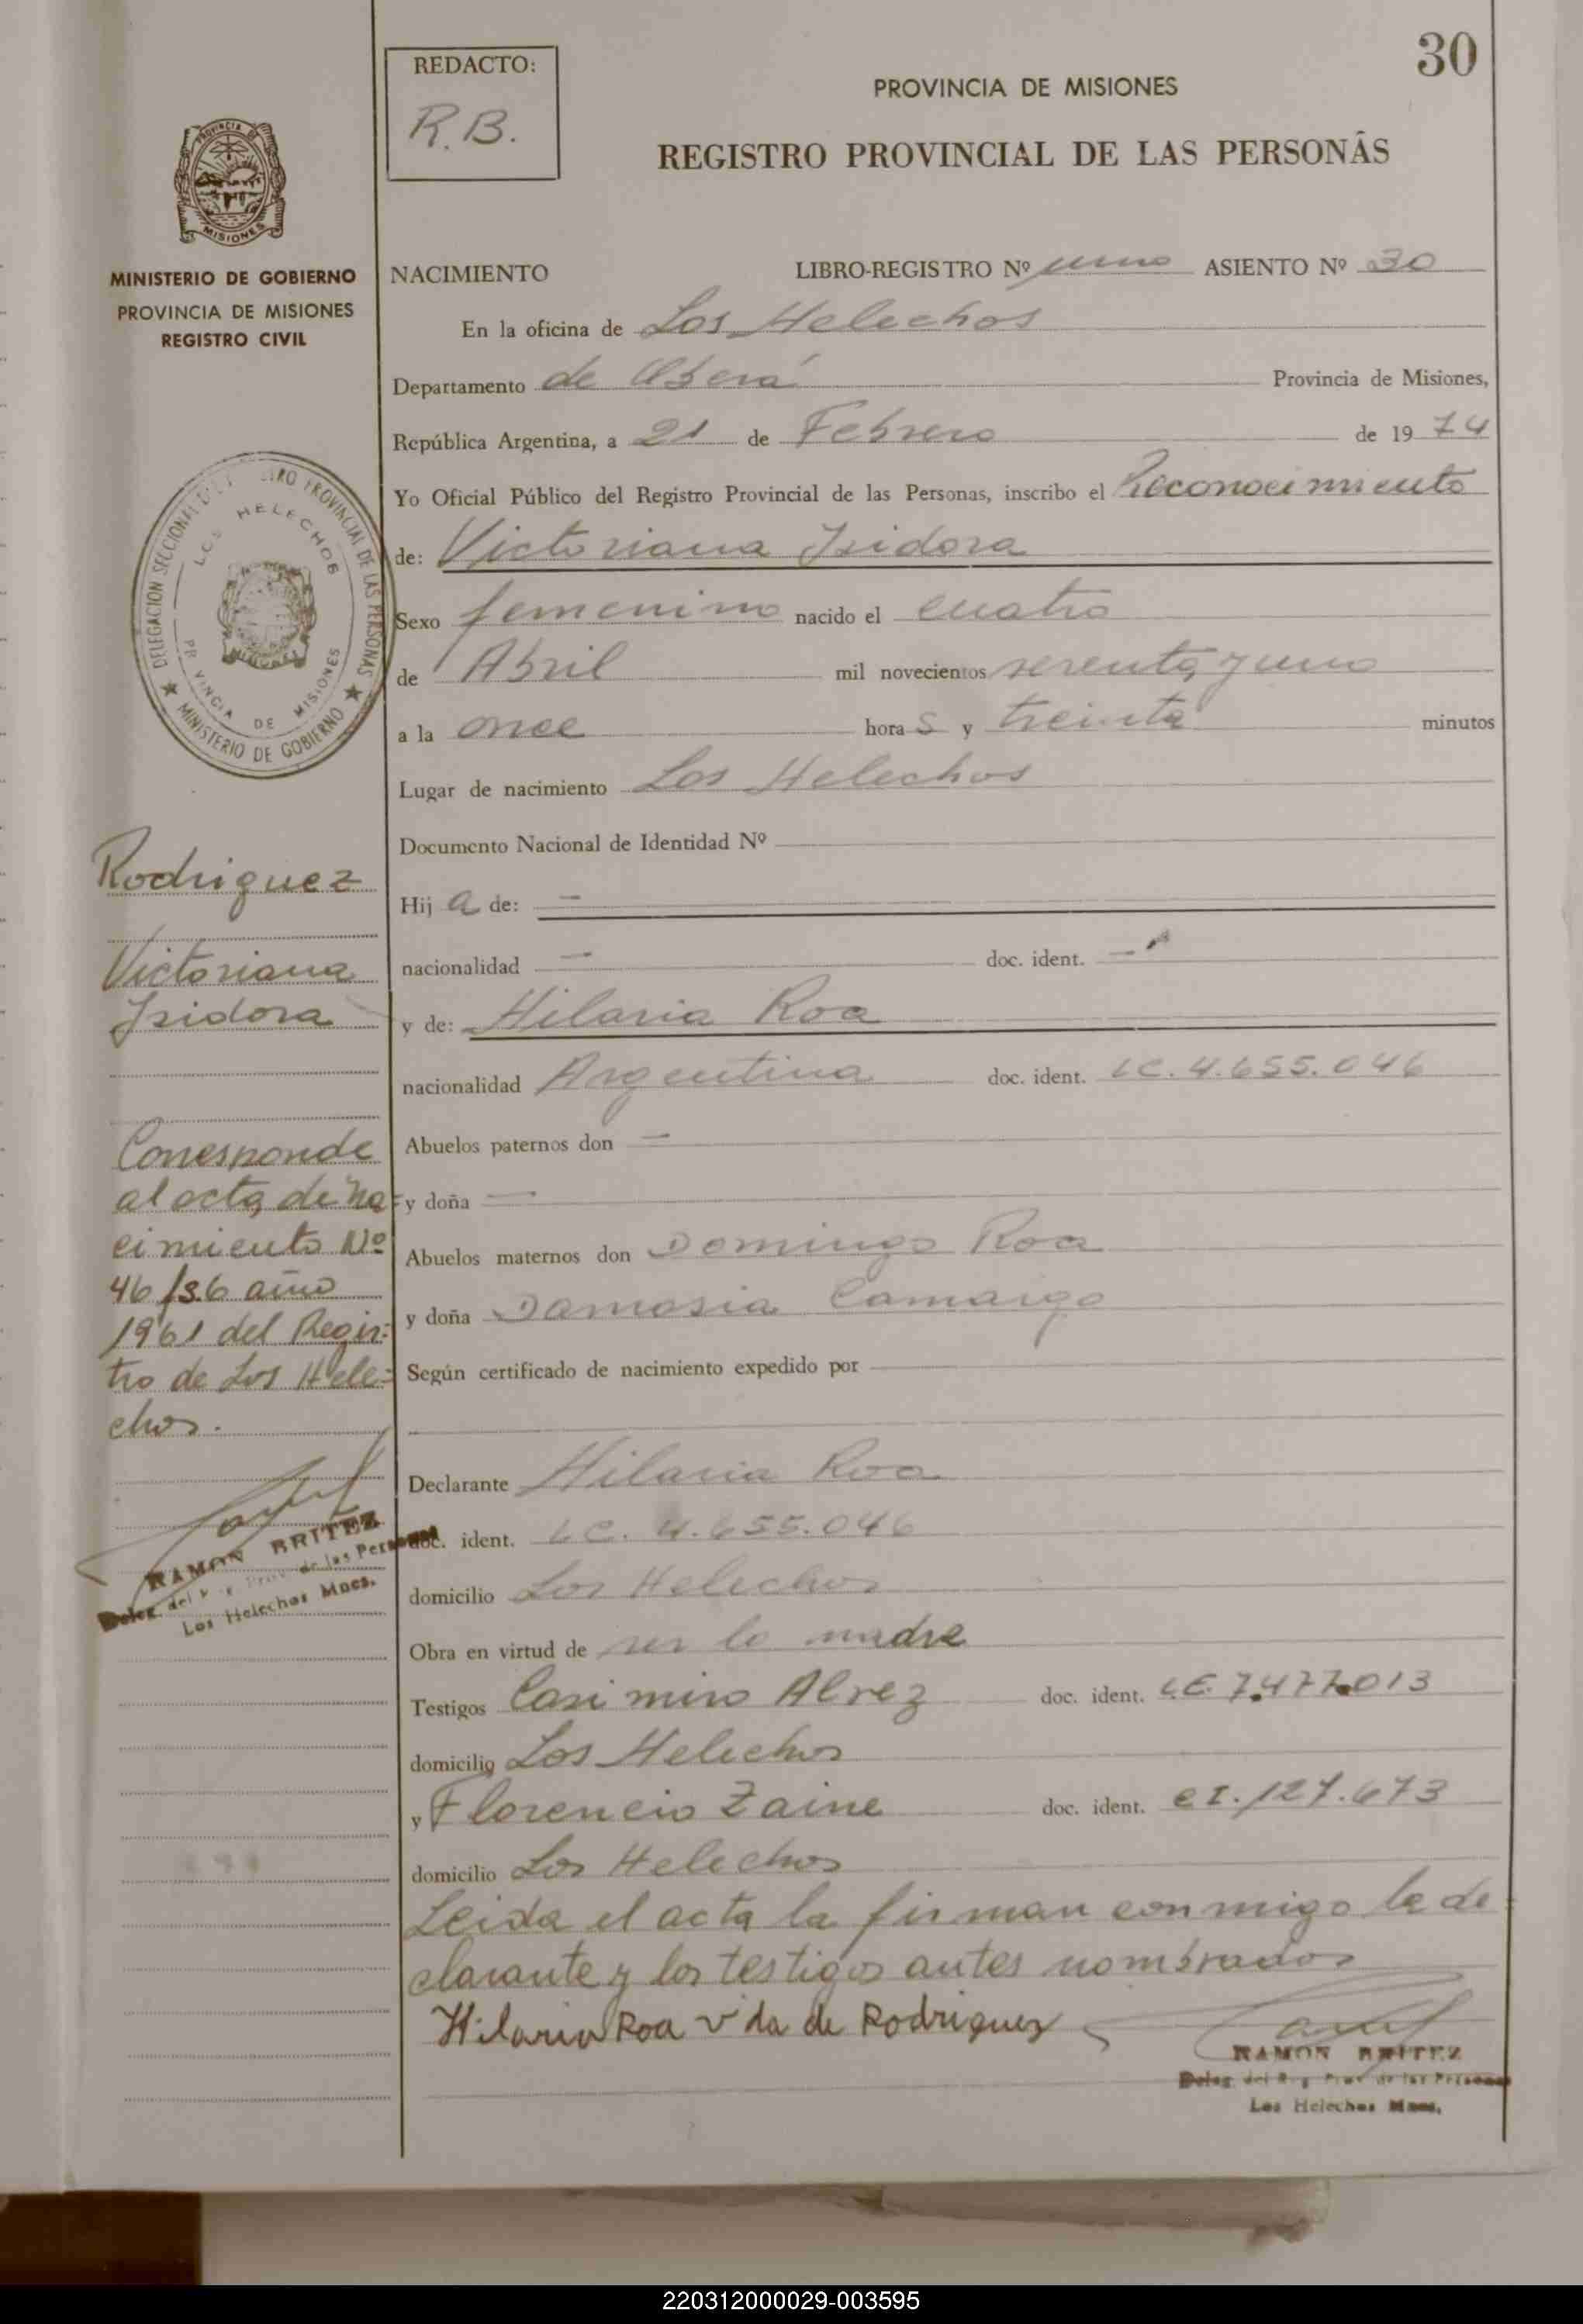 30
REDACTO:
R.B.
PROVINCIA DE MISIONES
REGISTRO PROVINCIAL DE LAS PERSONAS
MISIONES
MINISTERIO DE GOBIERNO
PROVINCIA DE MISIONES
REGISTRO CIVIL
NACIMIENTO LIBRO-REGISTRO Nº uno ASIENTO Nº 30
En la oficina de Los Helechos
Departamento de Oberá Provincia de Misiones,
República Argentina, a 21 de Febrero de 19 74
Yo Oficial Público del Registro Provincial de las Personas, inscribo el Reconocimiento
de: Victoriana Isidora
Sexo femenino nacido el cuatro
de Abril mil novecientos sesenta y uno
a la once hora s y treinta minutos
Lugar de nacimiento Los Helechos
Documento Nacional de Identidad Nº
Hij a de: -
nacionalidad - doc. ident. -
y de: Hilaria Roa
nacionalidad Argentina doc. ident. LC. 4.655.046
Abuelos paternos don -
y doña -
Abuelos maternos don Domingo Roa
y doña Damasia Camargo
Según certificado de nacimiento expedido por
Declarante Hilaria Roa
doc. ident. LC. 4.655.046
domicilio Los Helechos
Obra en virtud de ser la madre
Testigos Casimiro Alvez doc. ident. LE. 7.477.013
domicilio Los Helechos
y Florencio Zaine doc. ident. CI. 127.673
domicilio Los Helechos
Leida el acta la firman conmigo la de
clarante y los testigos antes nombrados
Hilaria Roa vda de Rodriguez
RAMON BRITEZ
Deleg. del Reg. Prov. de las Personas
Los Helechos Mnes.
DELEGACION SECCIONAL REGISTRO PROVINCIAL DE LAS PERSONAS
LOS HELECHOS
PROVINCIA DE MISIONES
★ MINISTERIO DE GOBIERNO ★
Rodriguez
Victoriana
Isidora
Corresponde
al acta de na-
cimiento Nº
46/s.6 año
1961 del Regis-
tro de Los Hele-
chos.
RAMON BRITEZ
Deleg. del Prov. de las Personas
Los Helechos Mnes.
220312000029-003595